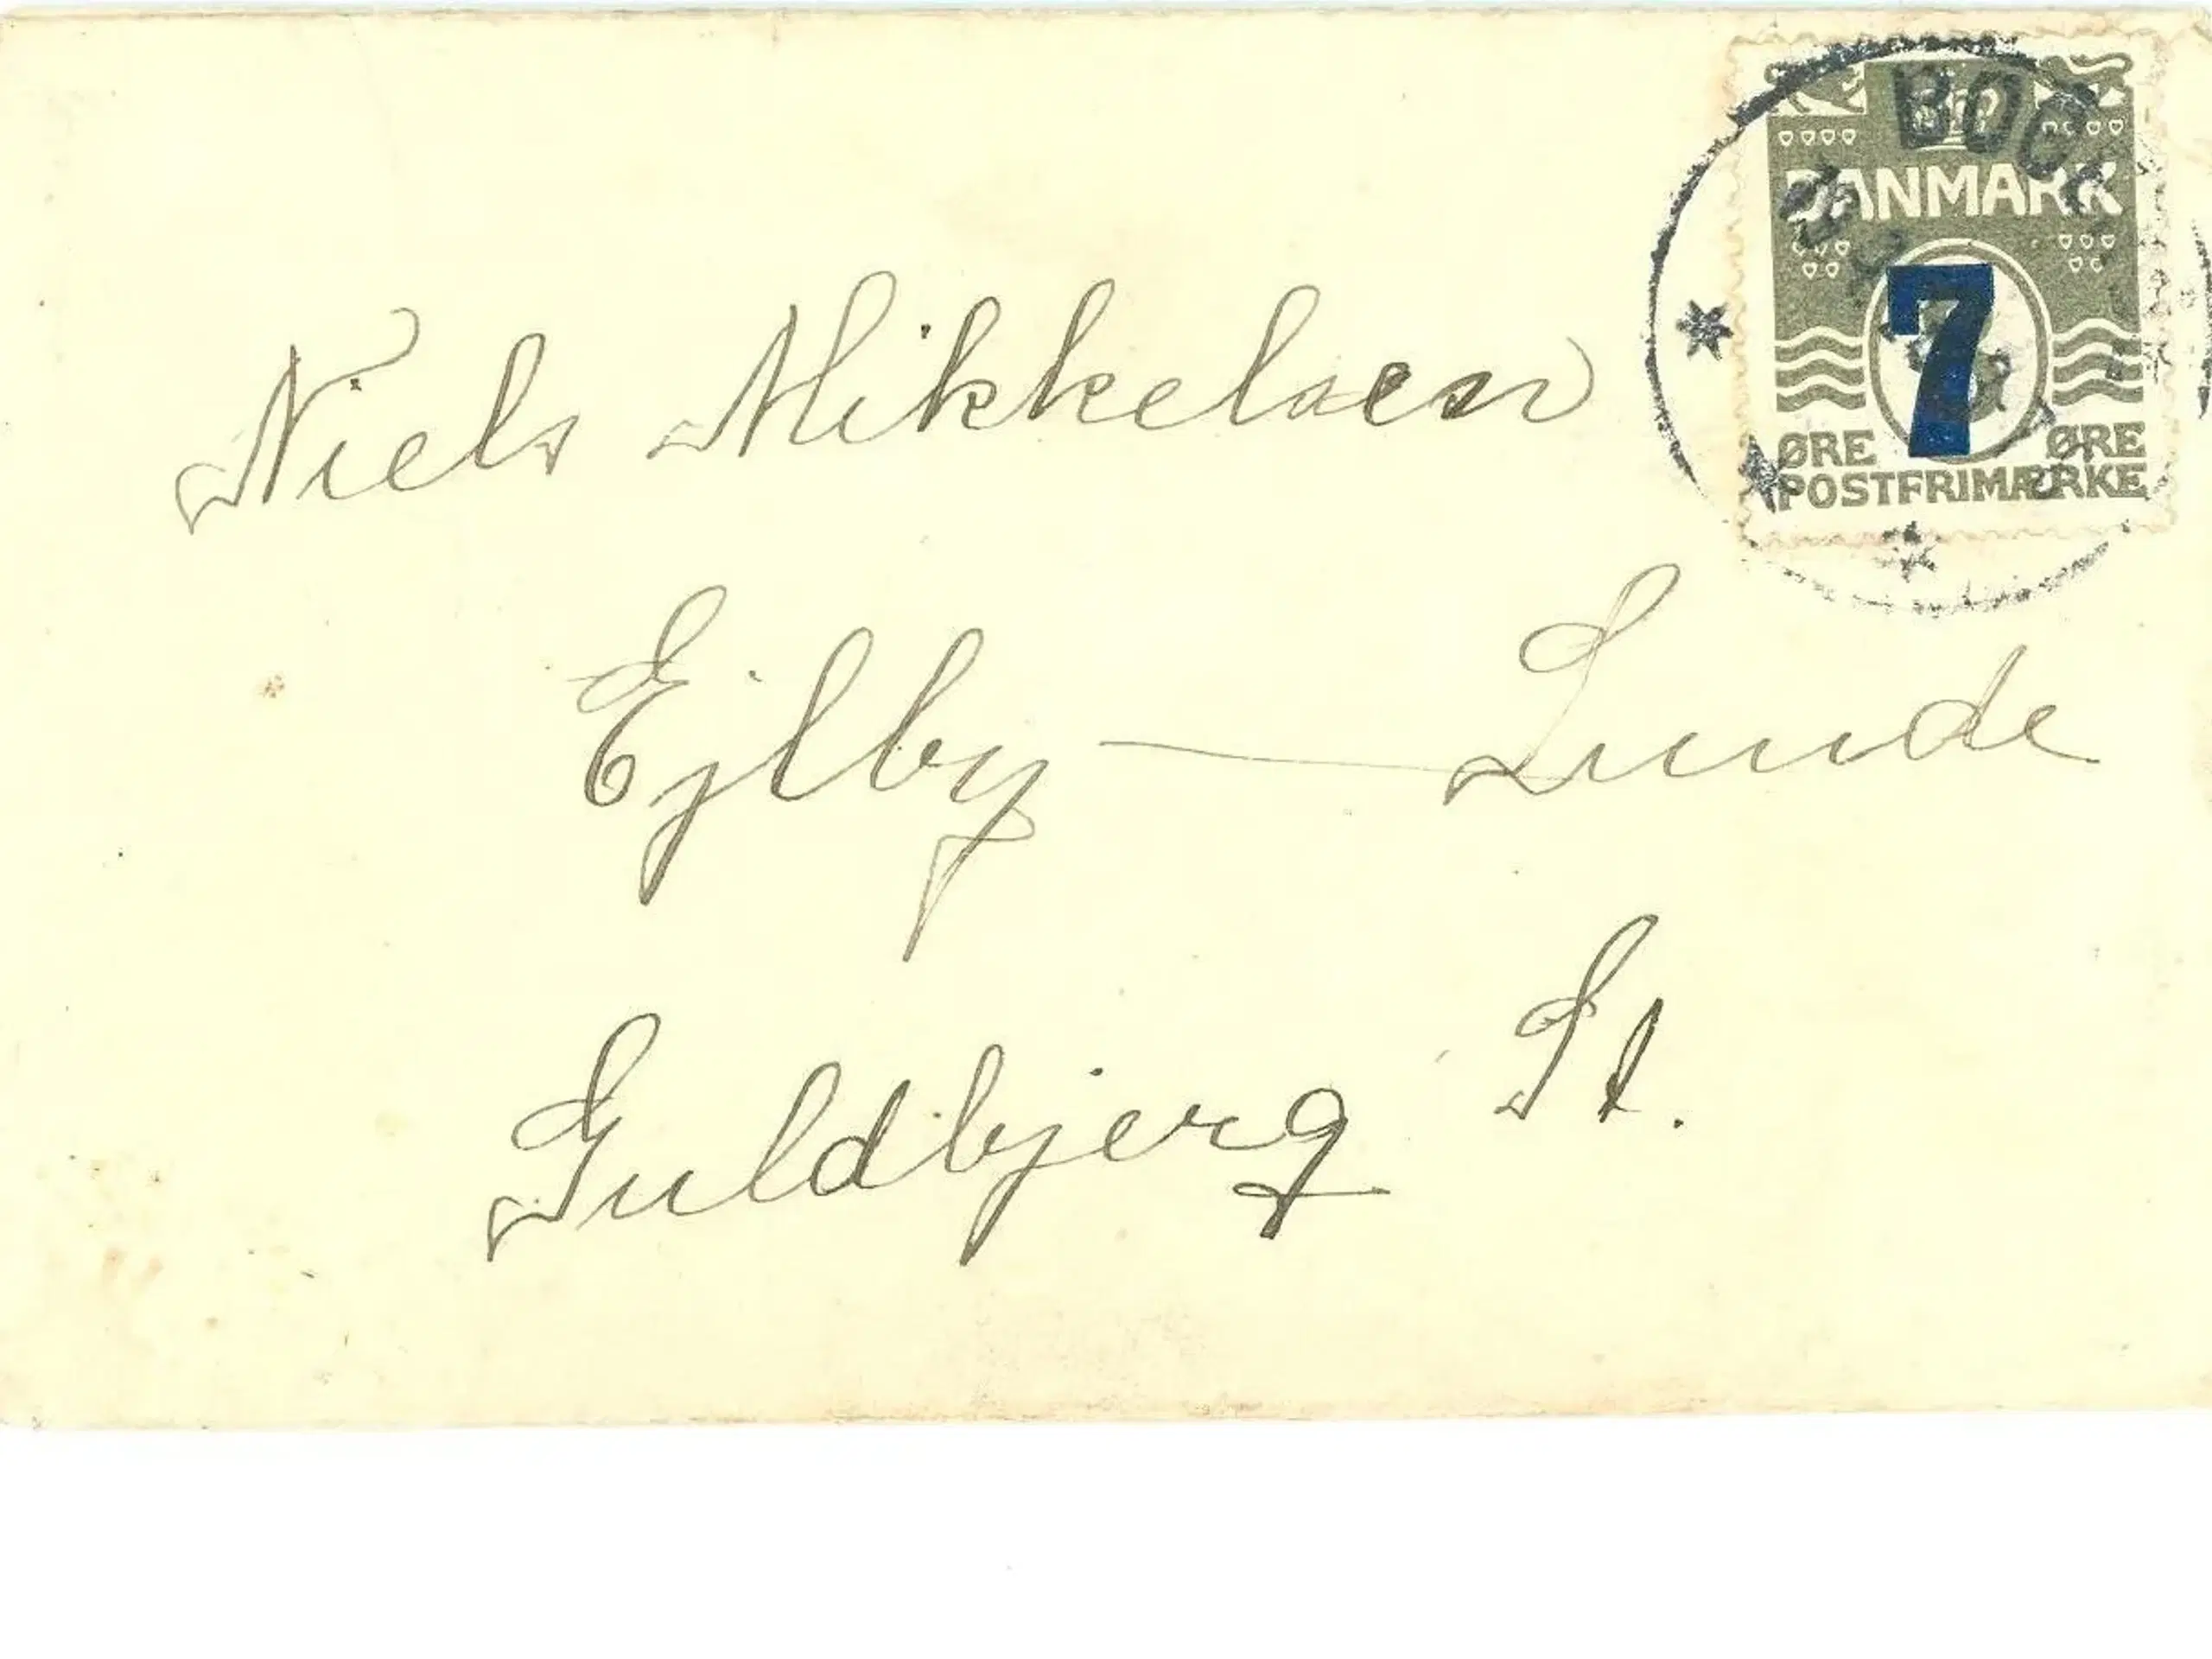 DANMARK
7
ØRE ØRE
POSTFRIMÆRKE
Niels Mikkelsen
Ejlby — Lunde
Guldbjerg St.